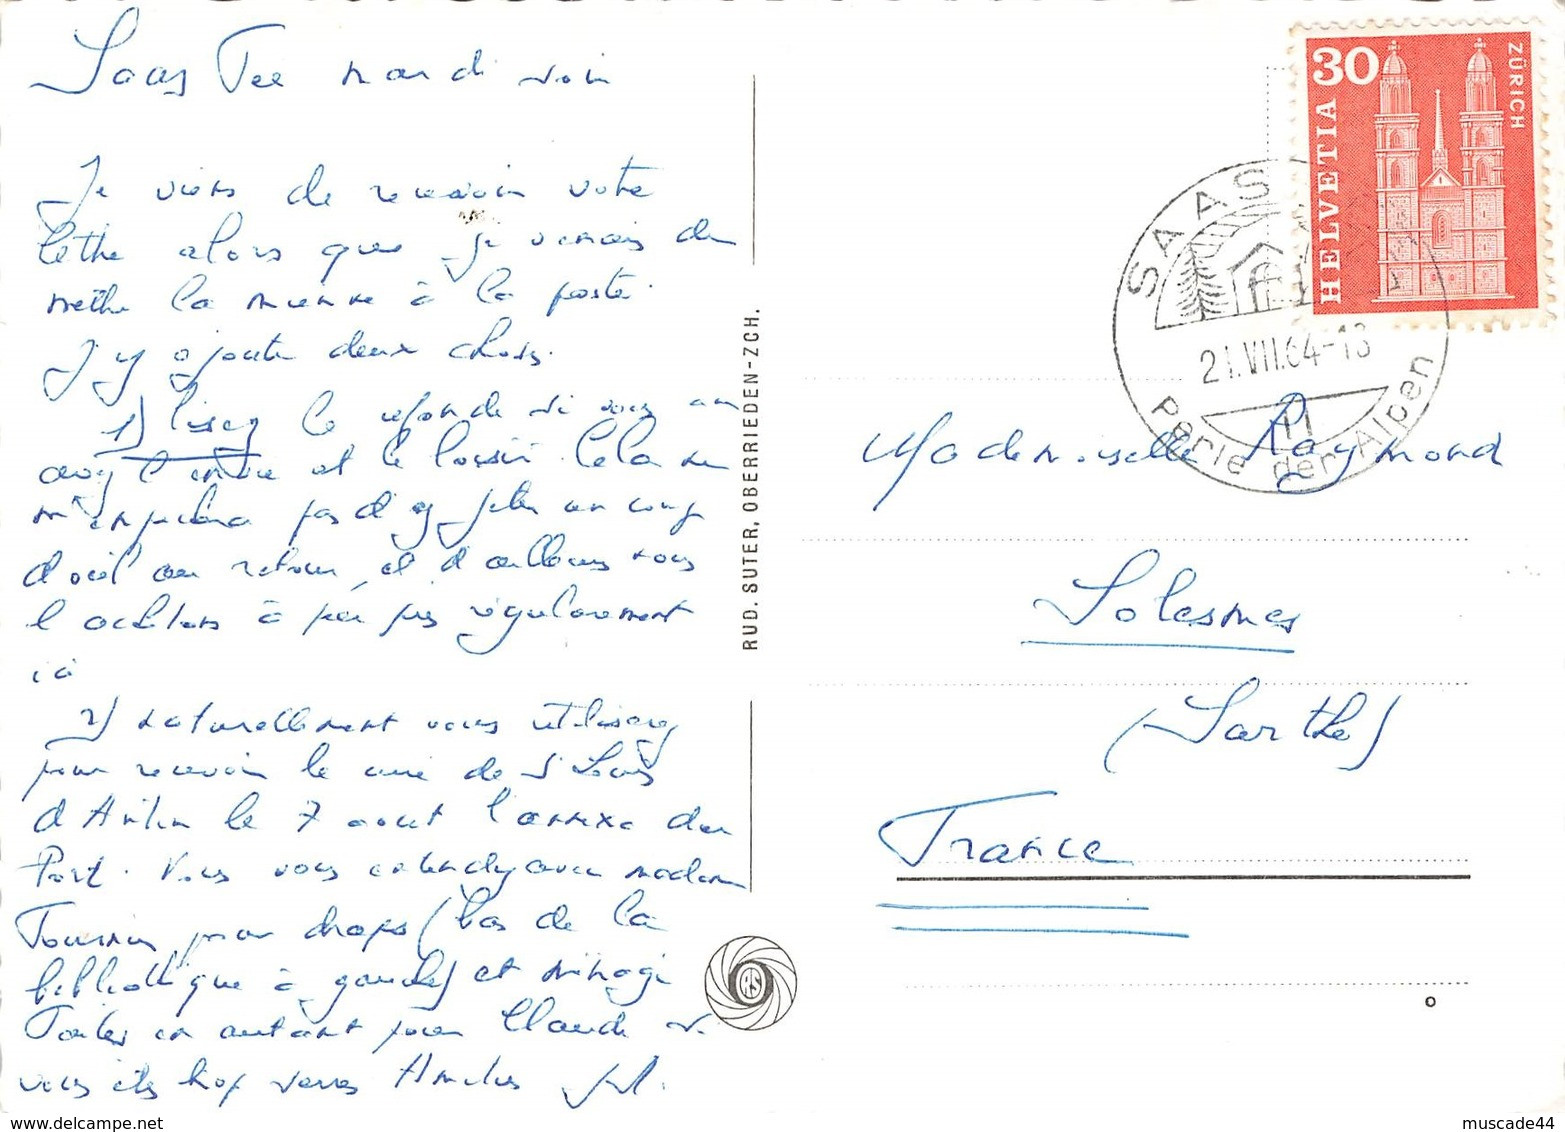 Saas Fee mardi soir
Je viens de recevoir votre
lettre alors que je venais de
mettre la mienne à la poste.
J'y ajoute deux choses.
1) lisez le monde si vous en
avez l'envie et le loisir. Cela ne
m'empêchera pas d'y jeter un coup
d'oeil au retour, et d'ailleurs nous
l'achetons à peu près régulièrement
ici
2) naturellement vous utiliserez
pour recevoir le curé de St Louis
d'Antin le 7 aout l'annexe du
Port. Vous vous entendez avec madame
pour draps (bas de la
bibliothèque à gauche) et ménage
Faites en autant pour Claude si
vous êtes trop Amitiés
RUD. SUTER, OBERRIEDEN-ZCH.
HELVETIA 30 ZÜRICH
SAAS
21.VII.64-18
Perle der Alpen
Mademoiselle Raymond
Solesmes
(Sarthe)
France
muscade44